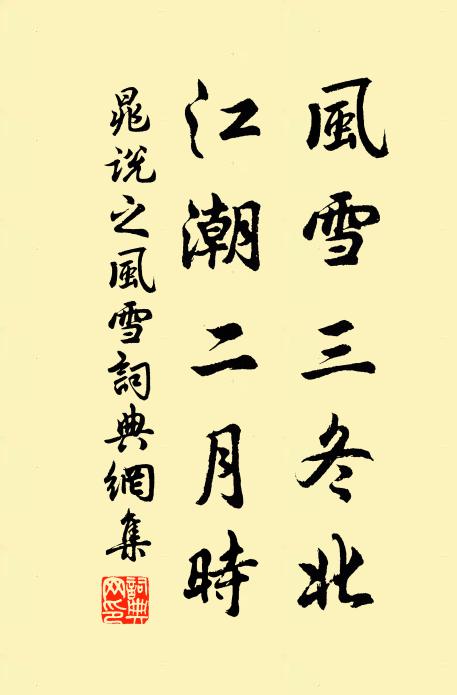 風雪三冬北
江潮二月時
晁説之風雪詞典網集
詞典網印